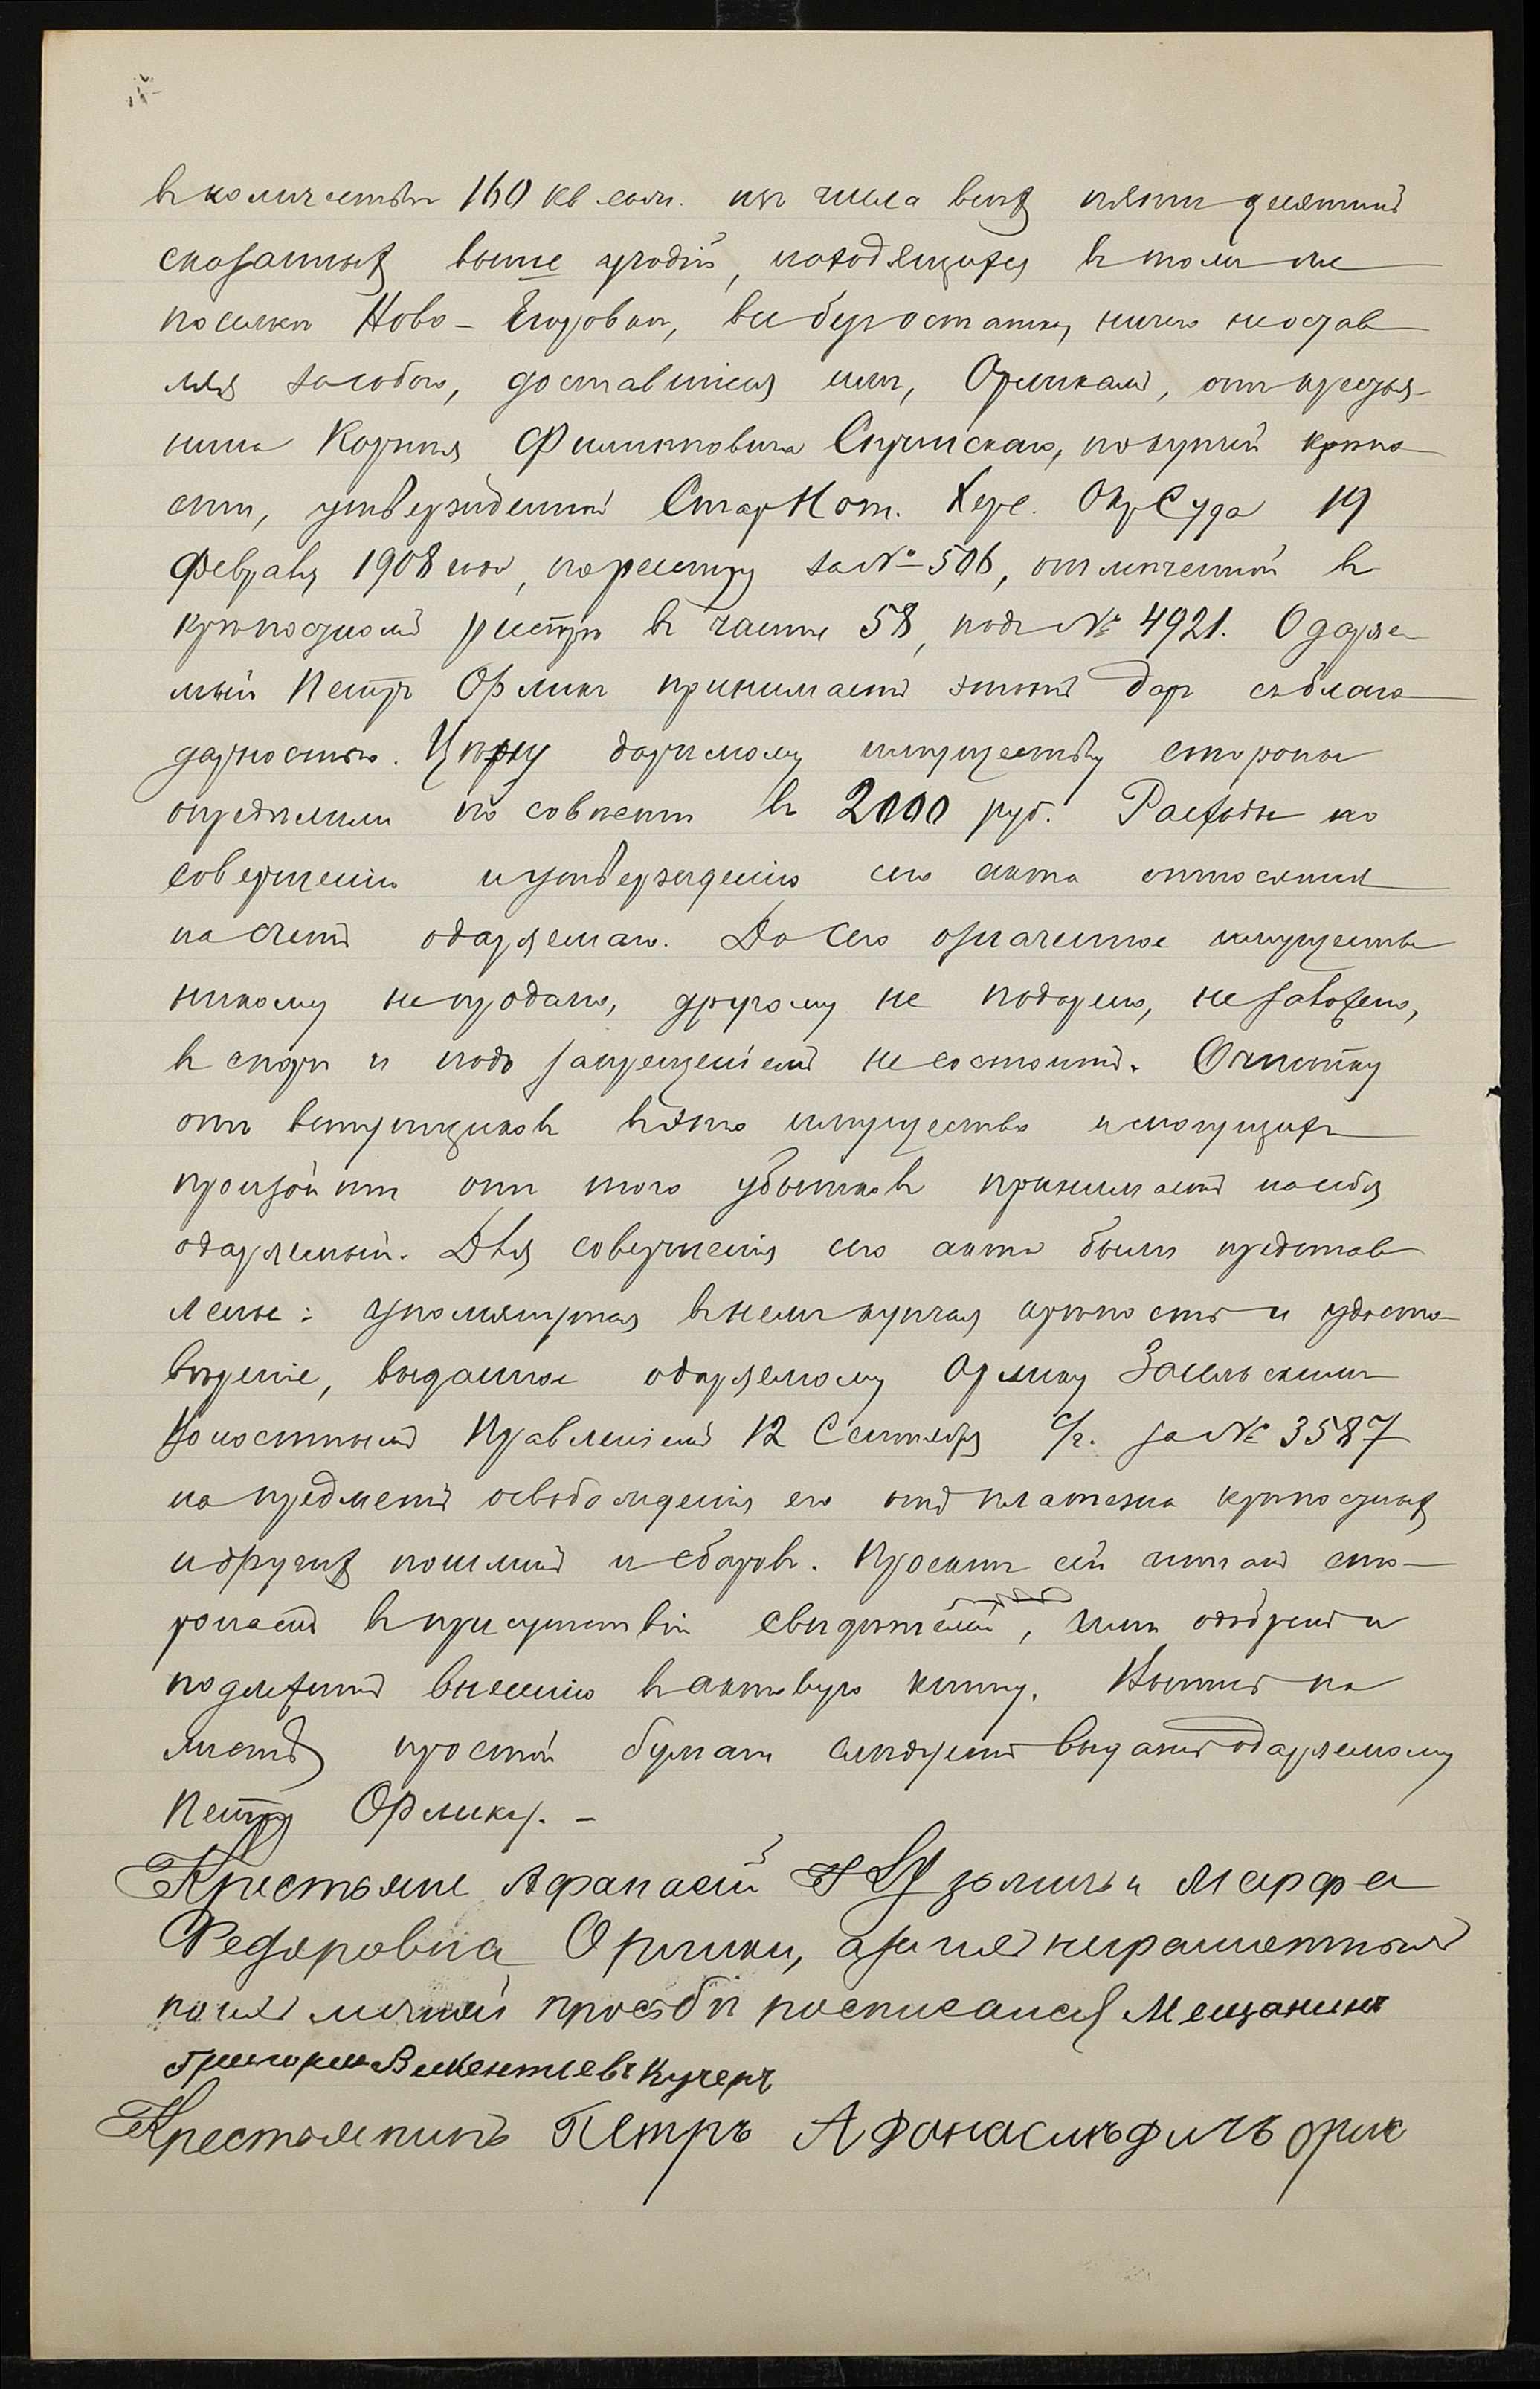 въ количествѣ 160 кв саж. изъ числа всѣхъ пяти десятинъ
сказанныхъ выше угодій, находящихся въ томъ же
поселкѣ Ново-Егоровкѣ, все безъ остатку, ничего не остав
ляя за собою, доставшіяся имъ, Орликамъ, отъ крестья-
нина Корнія Филипповича, по купчей крѣпо
сти, утвержденной Стар Нот. Херс. Окр Суда 19
Февраля 1908 года, по реестру за № 506, отмѣченной въ
крѣпостномъ реестрѣ въ части 58, подъ № 4921. Одаряе
мый Петръ Орликъ принимаетъ этотъ даръ съ благо
дарностью. Цѣну даримому имуществу стороны
опредѣлили по совѣсти въ 2000 руб. Расходы по
совершенію и утвержденію сего акта относятся
на счетъ одаряемаго. До сего означенное имущество
никому не продано, другому не подарено, не заложено,
въ спорѣ и подъ запрещеніемъ не состоитъ. Очистку
отъ вступщиковъ въ это имущество и могущихъ
произойти отъ того убытковъ принимаетъ на себя
одаряемый. Для совершенія сего акта были представ
лены: упомянутая въ немъ купчая крѣпость и удосто-
вѣреніе, выданное одаряемому Орлику Засельскимъ
Волостнымъ Правленіемъ 12 Сентября с/г. за № 3587
на предметъ освобожденія его отъ платежа крѣпостныхъ
и другихъ пошлинъ и сборовъ. Проектъ сей читанъ сто-
ронамъ въ присутствіи свидѣтелей, ими одобренъ и
подлежитъ внесенію въ актовую книгу. Выпись на
листѣ простой бумаги слѣдуетъ выдать одаряемому
Петру Орлику. -
Крестьяне Афанасій и Марфа
Федоровна Орлики, а за нихъ неграмотныхъ
по ихъ личной просьбѣ росписался Мещанинъ
Григорий Викентиевъ Кучеръ
Крестьянинъ Петръ Афонасиевичъ орлик